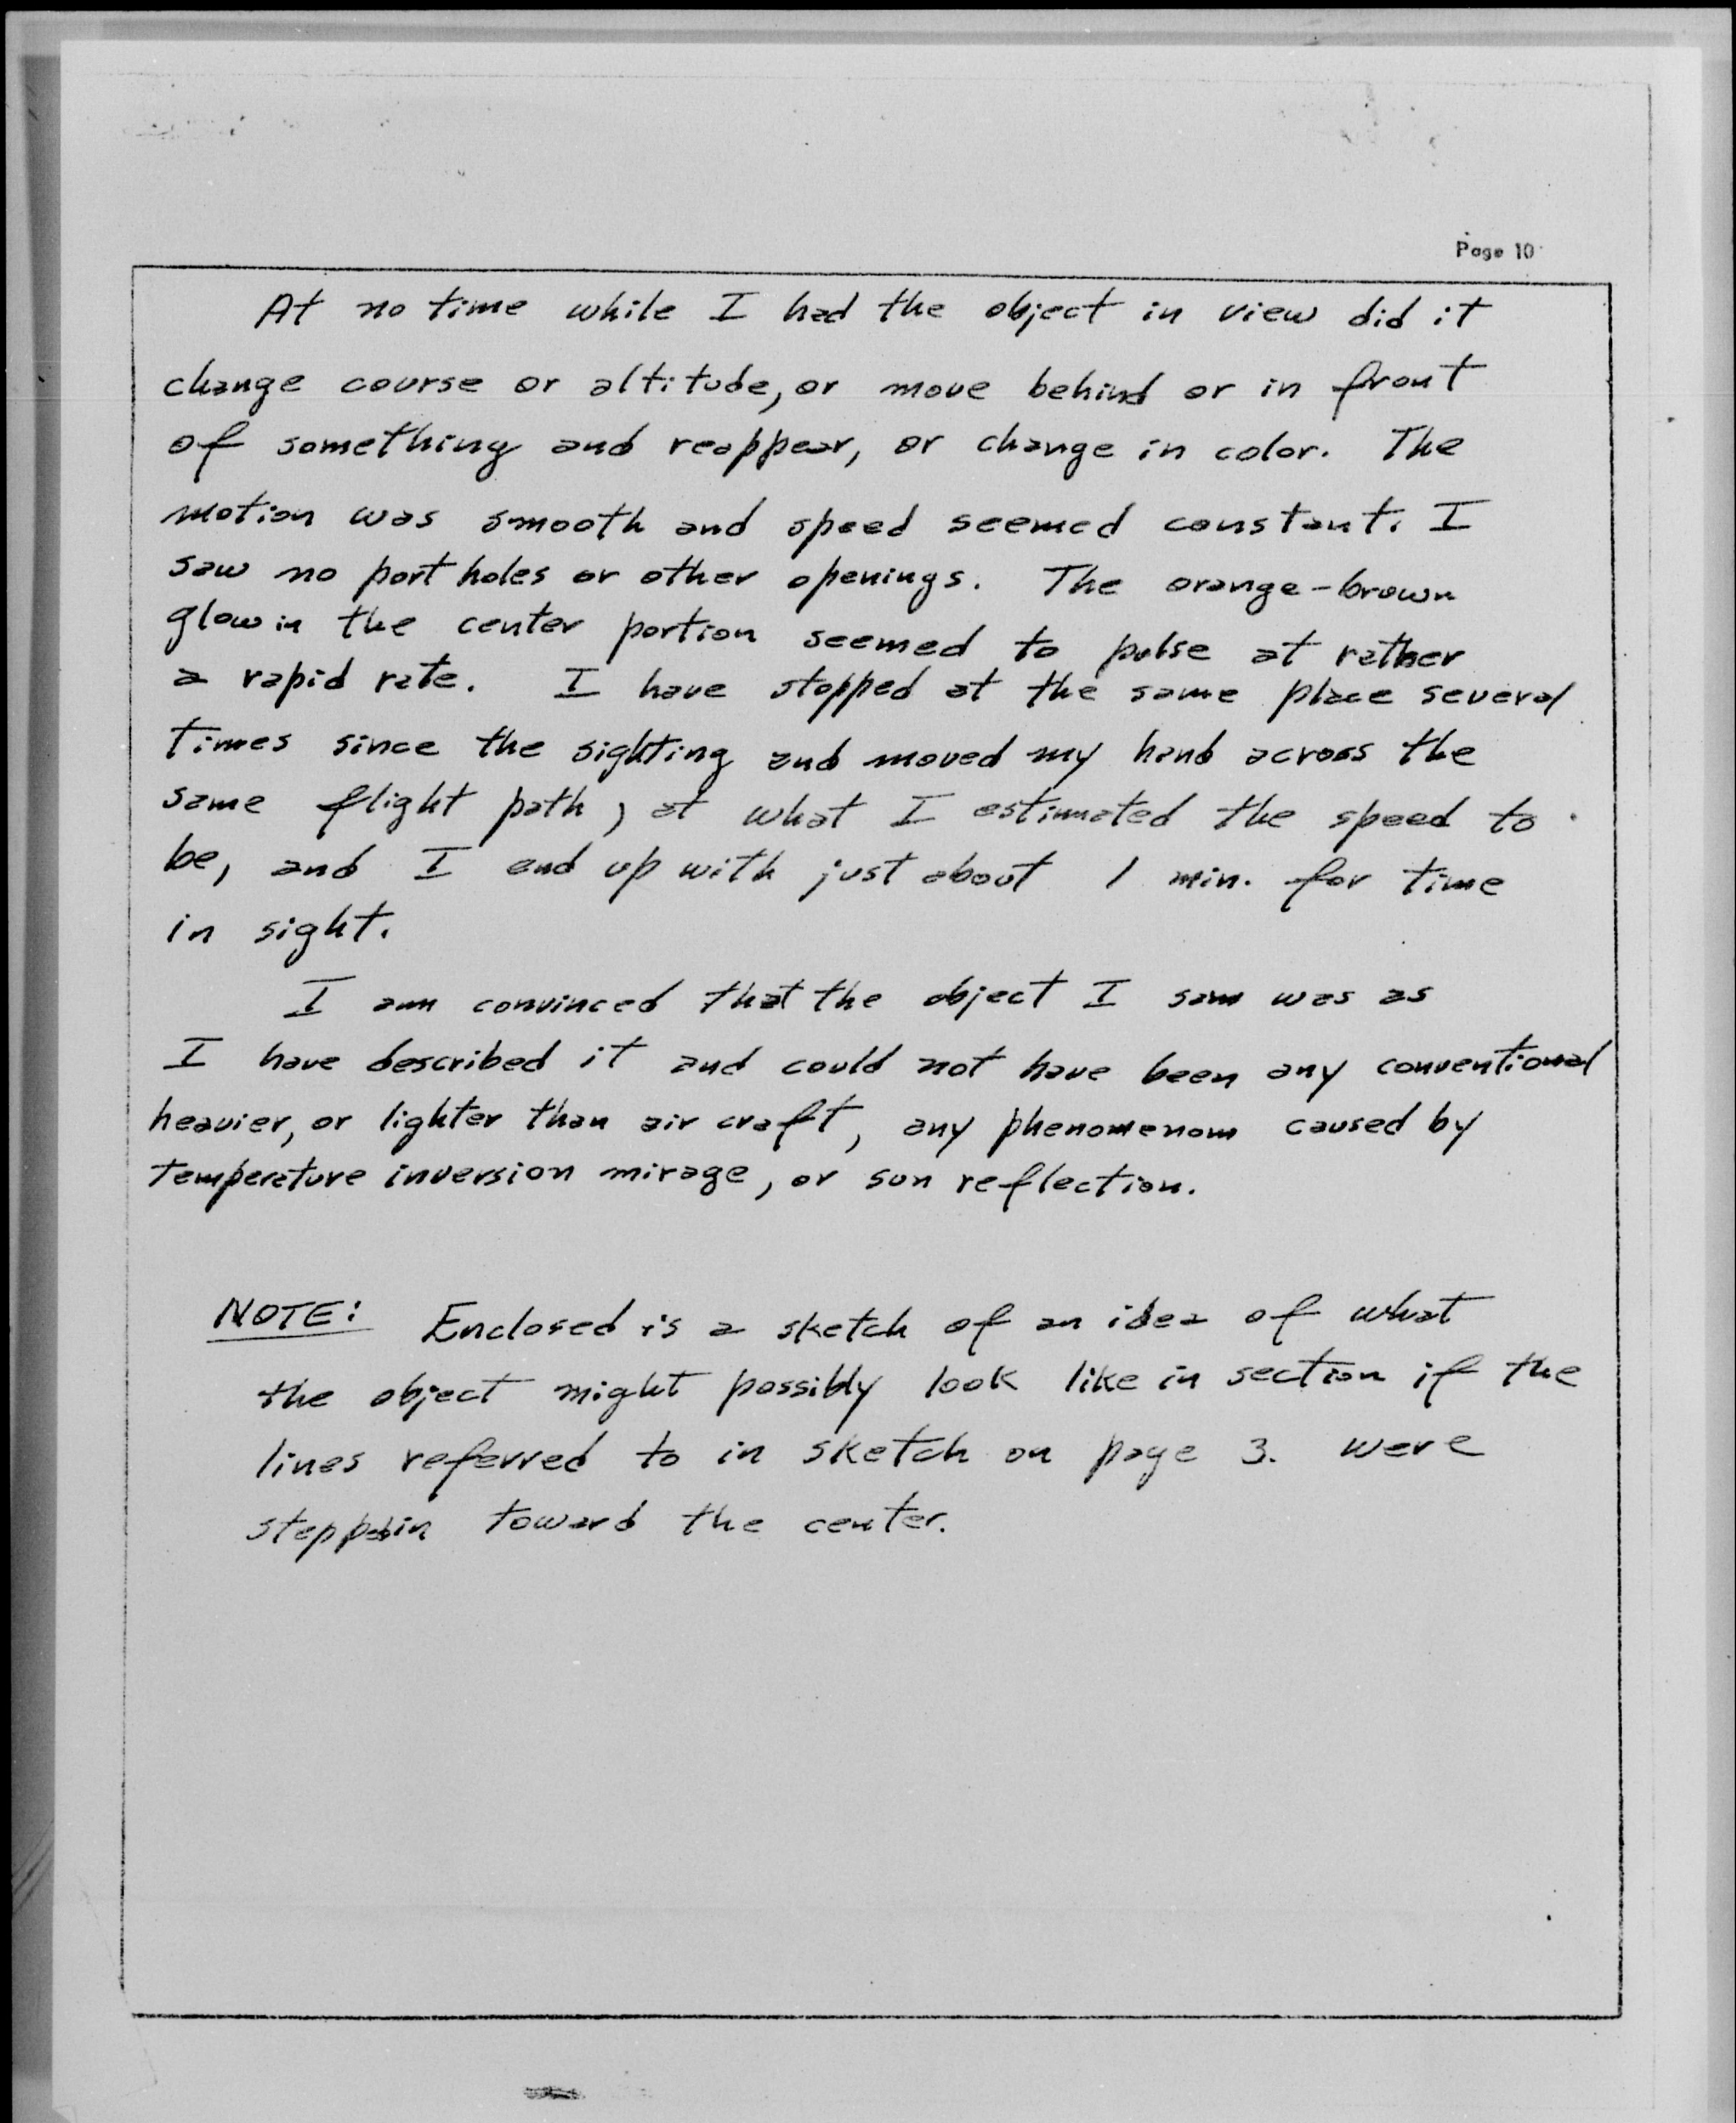 Page 10
At no time while I had the object in view did it
change course or altitude, or move behind or in front
of something and reappear, or change in color. The
motion was smooth and speed seemed constant. I
saw no port holes or other openings. The orange-brown
glow in the center portion seemed to pulse at rather
a rapid rate. I have stopped at the same place several
times since the sighting and moved my hand across the
same flight path, at what I estimated the speed to
be, and I end up with just about 1 min. for time
in sight.
I am convinced that the object I saw was as
I have described it and could not have been any conventional
heavier, or lighter than air craft, any phenomenom caused by
temperature inversion mirage, or sun reflection.
NOTE: Enclosed is a sketch of an idea of what
the object might possibly look like in section if the
lines referred to in sketch on page 3. were
stepped in toward the center.